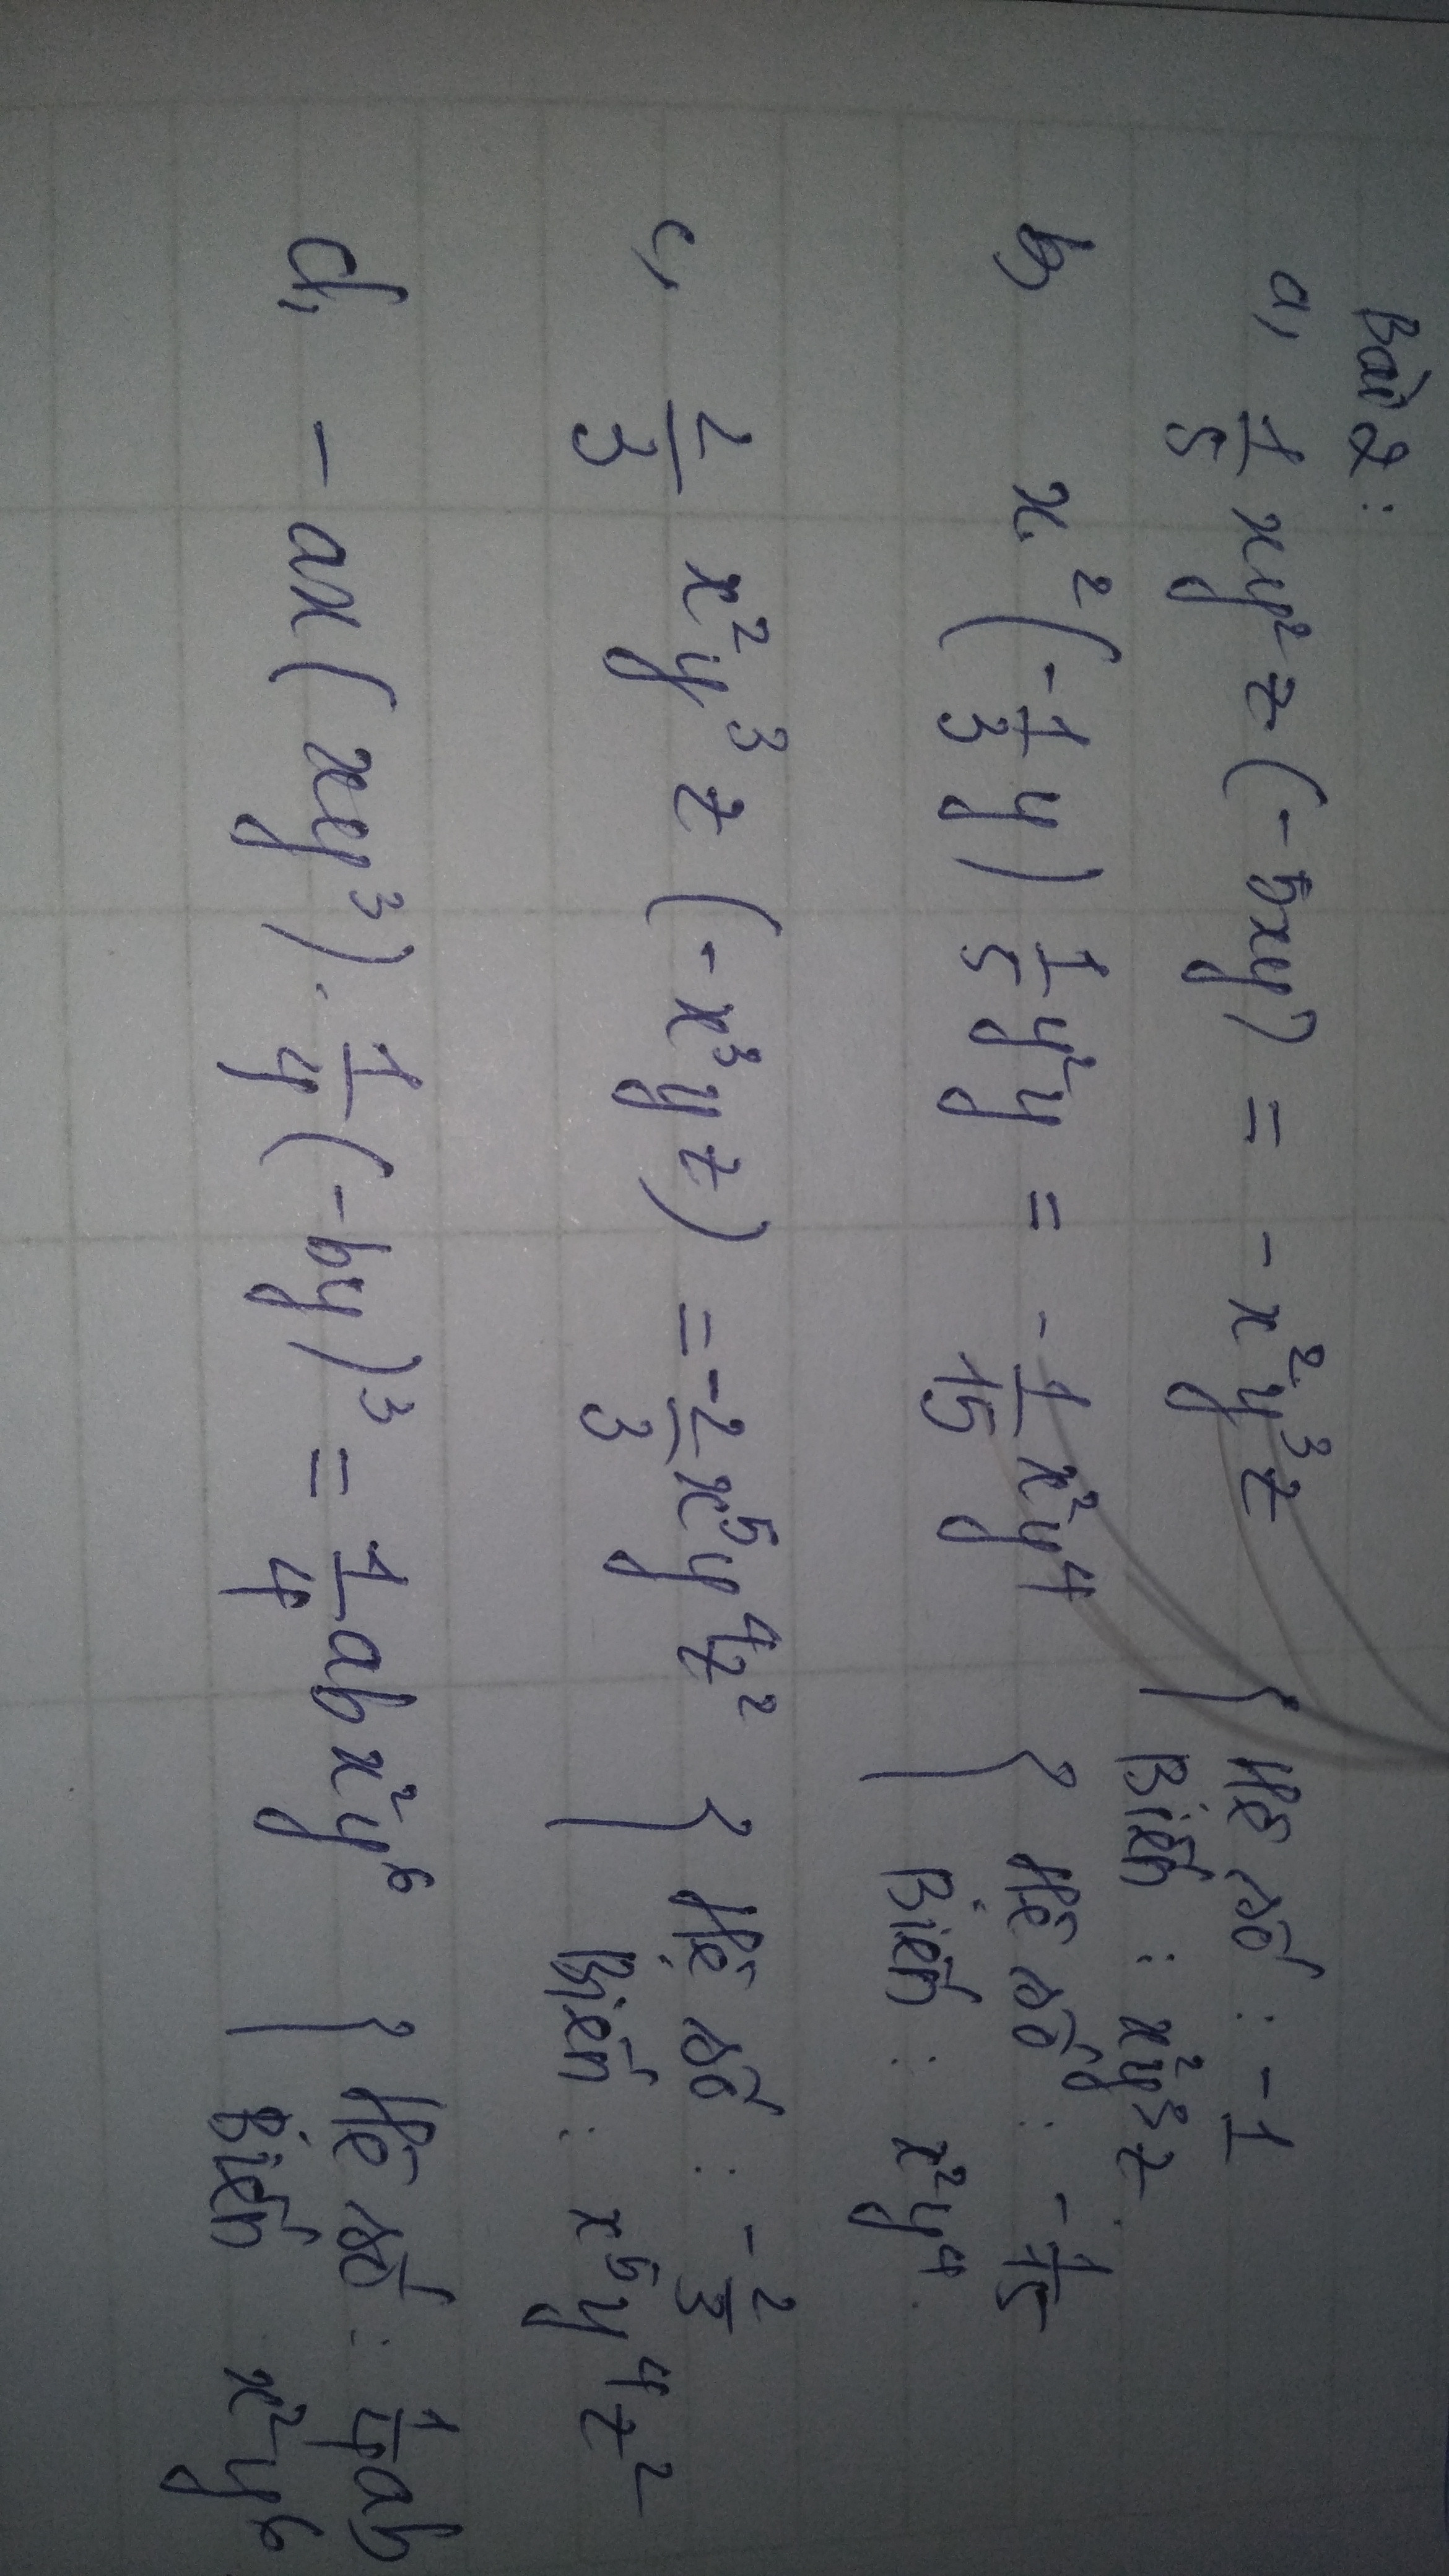 Bài 2:
a, 1/5 xy²z (-5xy) = -x²y³z { Hệ số : -1
Biến : x²y³z.
b, x² (-1/3 y) 1/5 y²y = -1/15 x²y⁴ { Hệ số : -1/15
Biến : x²y⁴.
c, 2/3 x²y³z (-x³yz) = -2/3 x⁵y⁴z² { Hệ số : -2/3
Biến : x⁵y⁴z²
d, -ax (xy³) . 1/4 (-by)³ = 1/4 abx²y⁶ { Hệ số : 1/4 ab
Biến x²y⁶